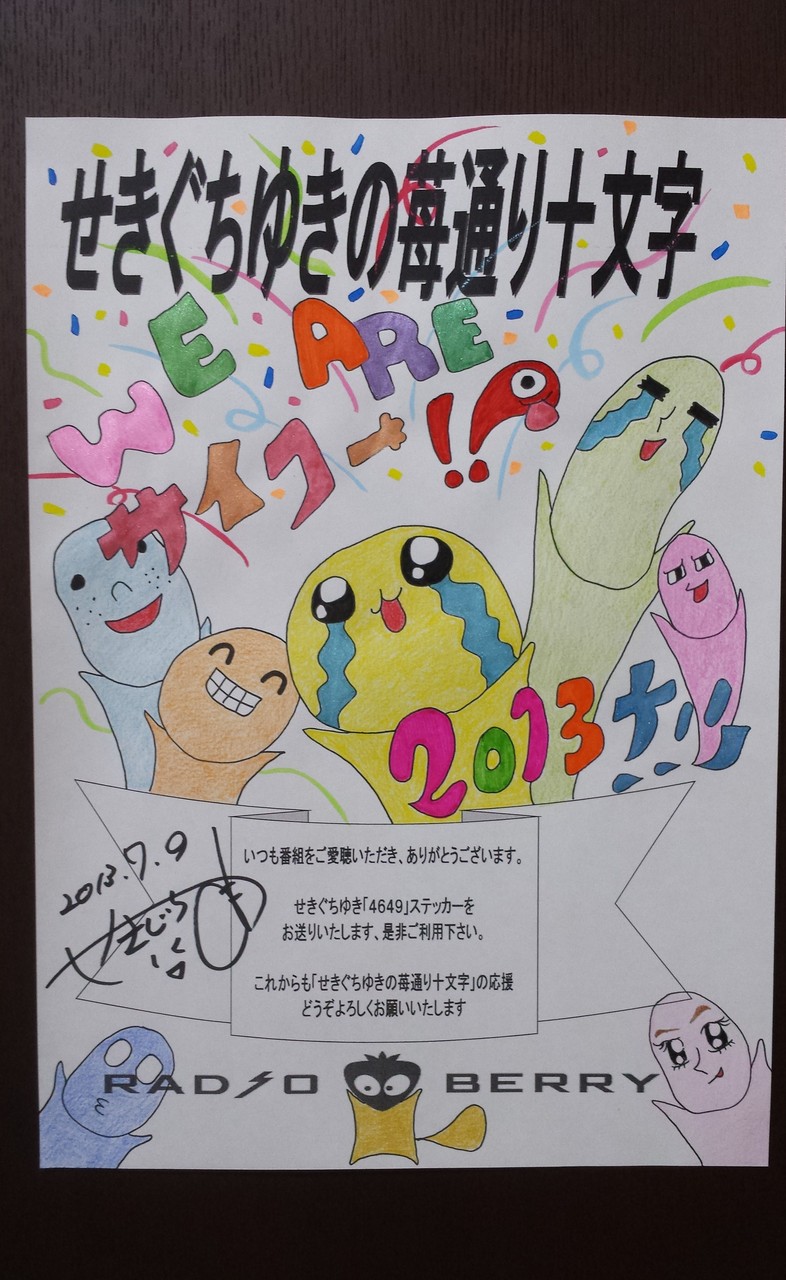 せきぐちゆきの苺通り十文字
WE ARE
サイコー!!
2013
いつも番組をご愛聴いただき、ありがとうございます。
せきぐちゆき「4649」ステッカーを
お送りいたします、是非ご利用下さい。
これからも「せきぐちゆきの苺通り十文字」の応援
どうぞよろしくお願いいたします
2013.7.9
RADIO BERRY